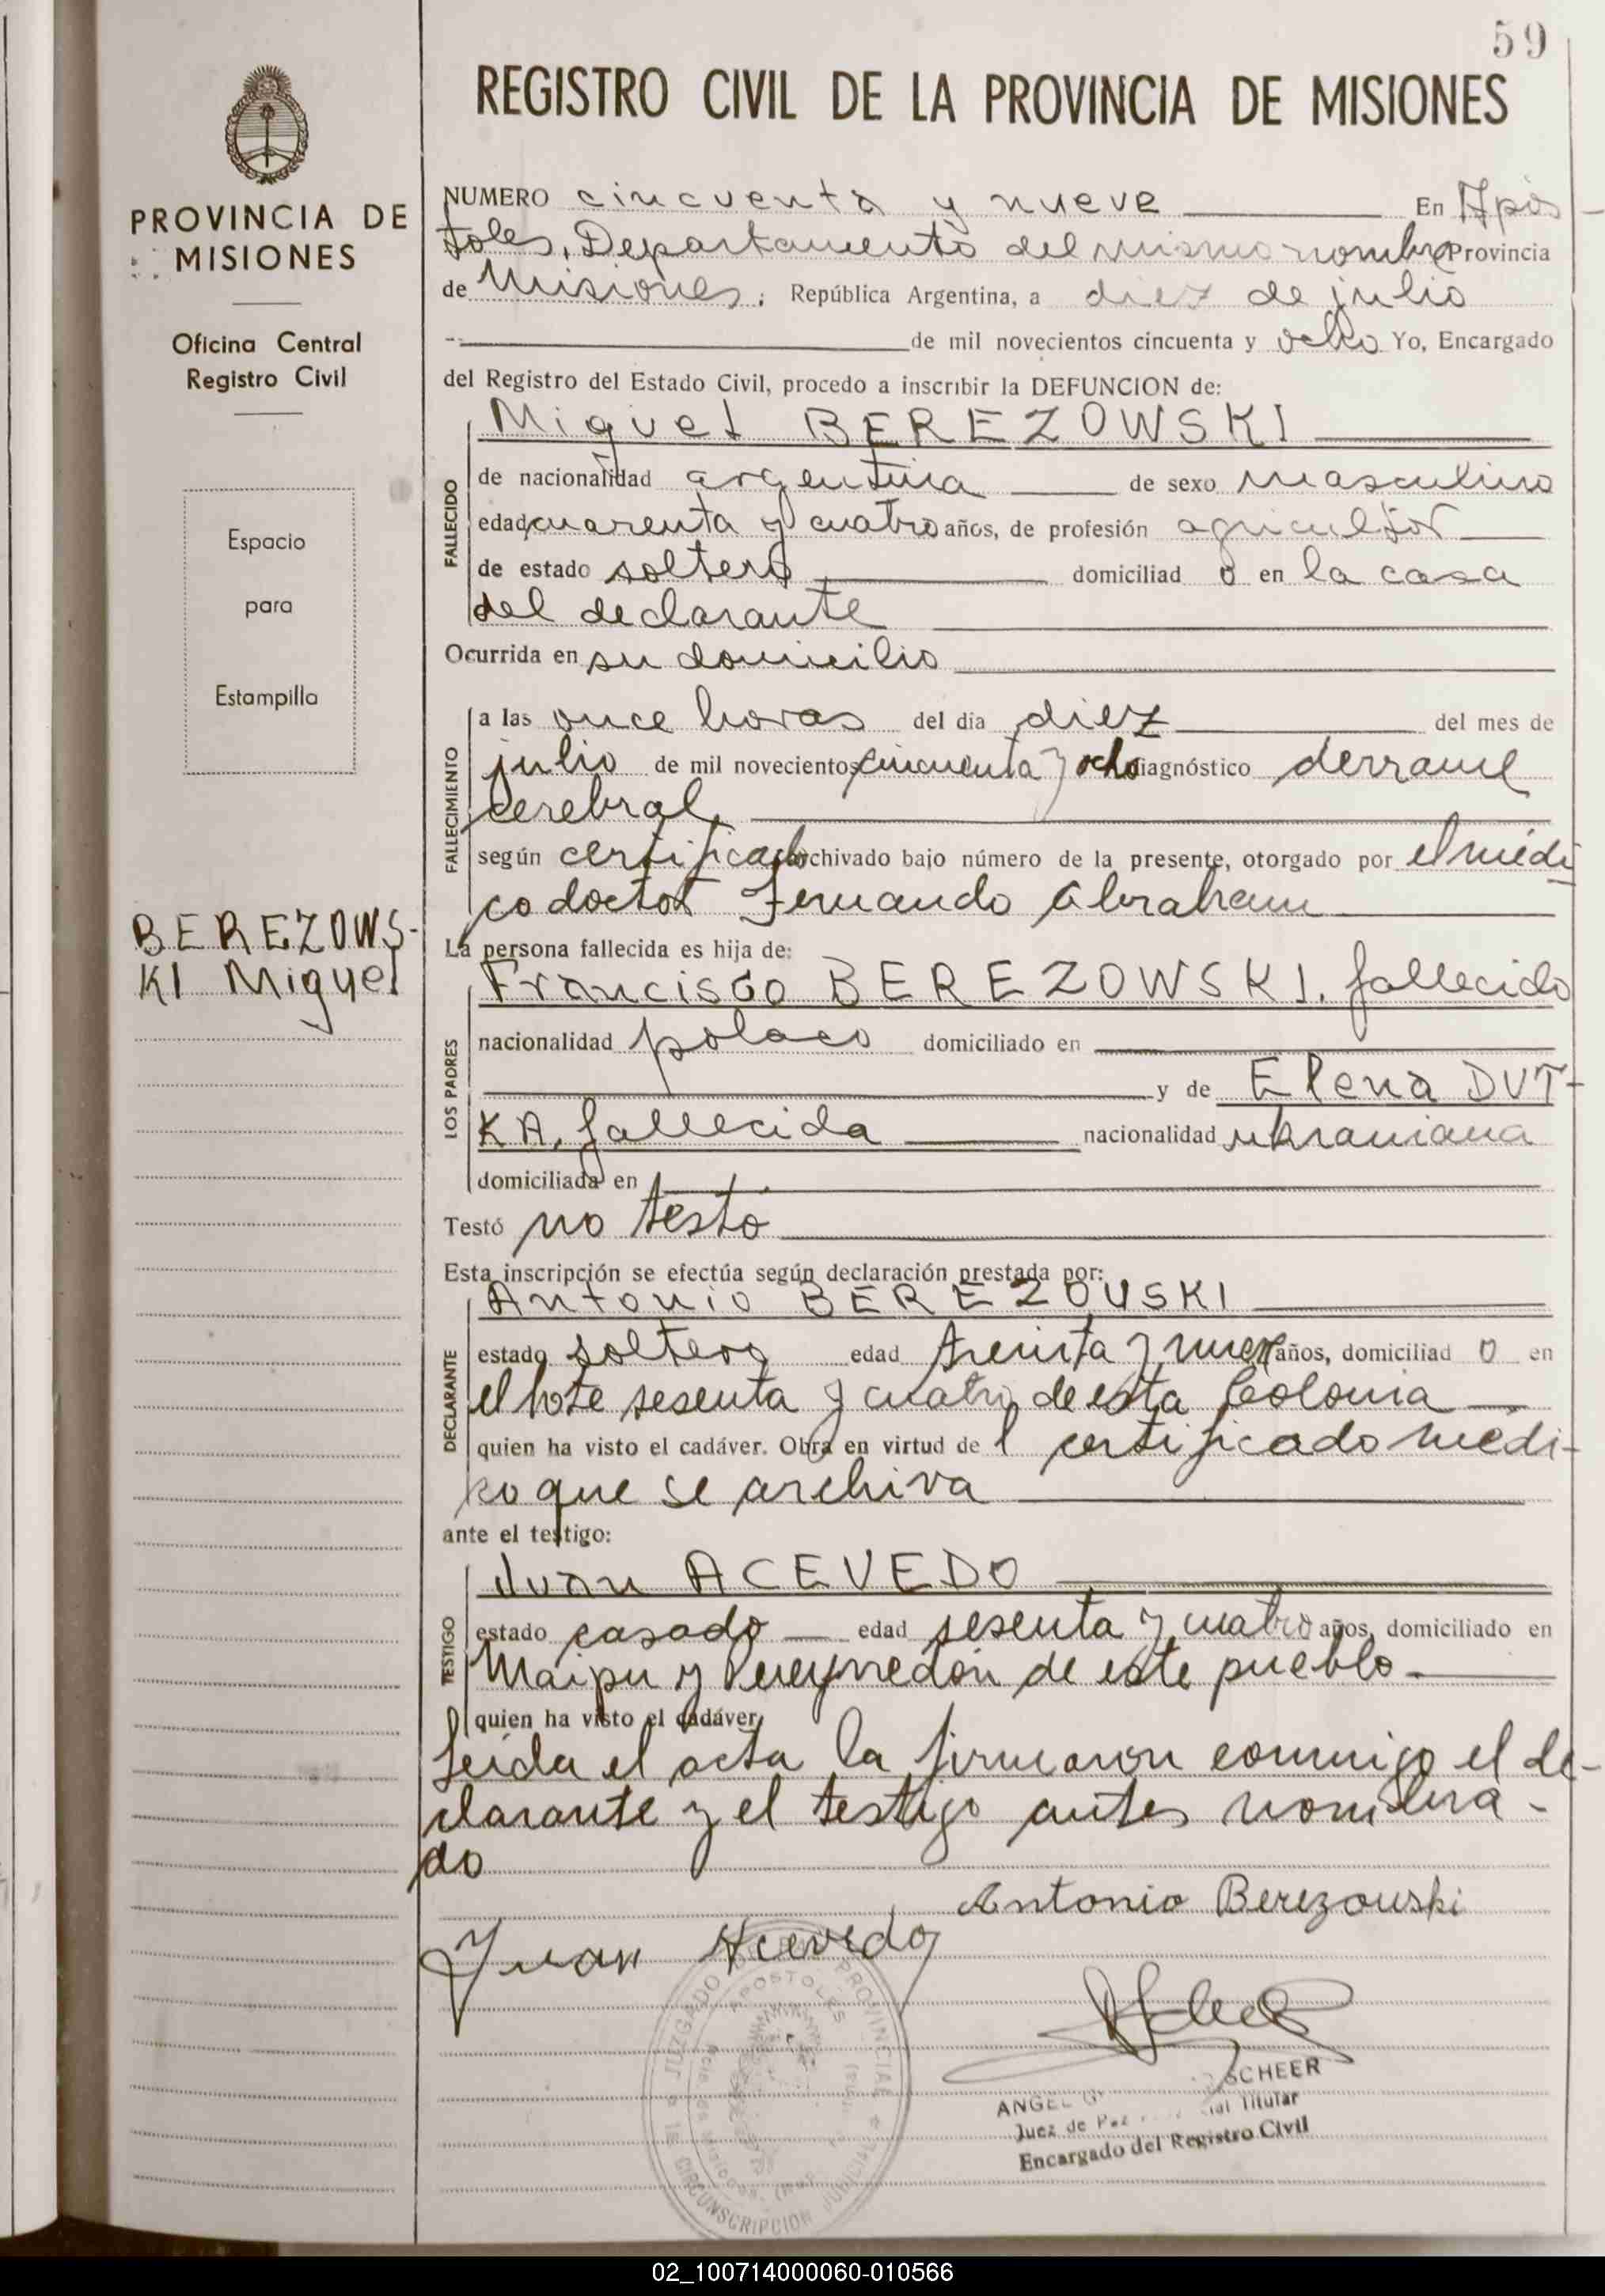 59
REGISTRO CIVIL DE LA PROVINCIA DE MISIONES
PROVINCIA DE
MISIONES
Oficina Central
Registro Civil
Espacio
para
Estampilla
BEREZOWS-
KI Miguel
NUMERO cincuenta y nueve En Após
toles, Departamento del mismo nombre Provincia
de Misiones; República Argentina, a diez de julio
de mil novecientos cincuenta y ocho Yo, Encargado
del Registro del Estado Civil, procedo a inscribir la DEFUNCION de:
Miguel BEREZOWSKI
FALLECIDO
de nacionalidad argentina de sexo masculino
edad cuarenta y cuatro años, de profesión agricultor
de estado soltero domiciliad o en la casa
del declarante
Ocurrida en su domicilio
FALLECIMIENTO
a las once horas del día diez del mes de
julio de mil novecientos cincuenta y ocho diagnóstico derrame
cerebral
según certificado archivado bajo número de la presente, otorgado por el médi
co doctor Fernando Abraham
La persona fallecida es hija de:
LOS PADRES
Francisco BEREZOWSKI, fallecido
nacionalidad polaco domiciliado en
y de Elena DUT-
KA, fallecida nacionalidad ukraniana
domiciliada en
Testó no testó
Esta inscripción se efectúa según declaración prestada por:
DECLARANTE
Antonio BEREZOUSKI
estado soltero edad treinta y nueve años, domiciliad o en
el lote sesenta y cuatro de esta Colonia
quien ha visto el cadáver. Obra en virtud de l certificado médi-
co que se archiva
ante el testigo:
TESTIGO
Juan ACEVEDO
estado casado edad sesenta y cuatro años, domiciliado en
Maipu y Pueyrredón de este pueblo
quien ha visto el cadáver
Leida el acta la firmaron conmigo el de-
clarante y el testigo antes nombra-
do
Antonio Berezouski
Juan Acevedo
JUZGADO DE PAZ PROVINCIAL
APOSTOLES
CIRCUNSCRIPCION JUDICIAL
ANGEL SCHEER
Juez de Paz Titular
Encargado del Registro Civil
02_100714000060-010566